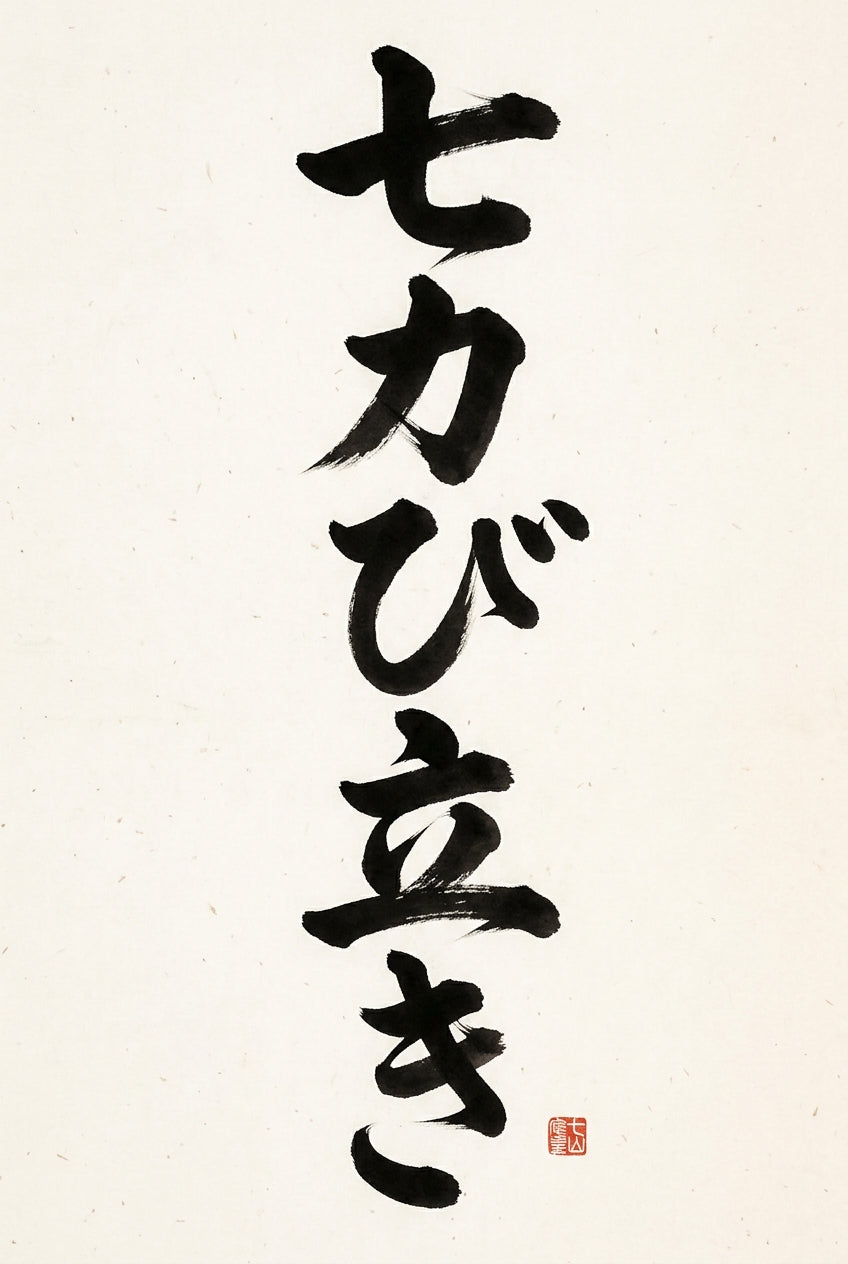 七力び立き